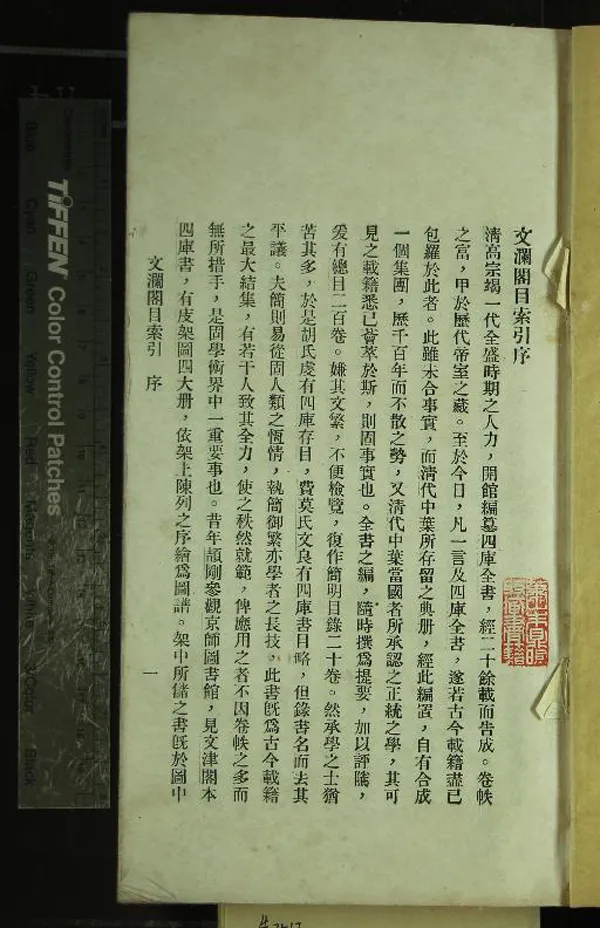 文瀾閣目索引序
清高宗竭一代全盛時期之人力，開館編纂四庫全書，經二十餘載而告成。卷帙
之富，甲於歷代帝室之藏。至於今日，凡一言及四庫全書，遂若古今載籍盡已
包羅於此者。此雖未合事實，而清代中葉所存留之典册，經此編置，自有合成
一個集團，歷千百年而不散之勢，又清代中葉當國者所承認之正統之學，其可
見之載籍悉已薈萃於斯，則固事實也。全書之編，隨時撰爲提要，加以評隲，
爰有總目二百卷。嫌其文繁，不便檢覽，復作簡明目錄二十卷。然承學之士猶
苦其多，於是胡氏虔有四庫存目，費莫氏文良有四庫書目略，但錄書名而去其
平議。夫簡則易從固人類之恆情，執簡御繁亦學者之長技，此書既爲古今載籍
之最大結集，有若干人致其全力，使之秩然就範，俾應用之者不因卷帙之多而
無所措手，是固學術界中一重要事也。昔年頡剛參觀京師圖書館，見文津閣本
四庫書，有庋架圖四大册，依架上陳列之序繪爲圖譜。架中所儲之書既於圖中
文瀾閣目索引 序
一
TIFFEN Color Control Patches
Blue
Cyan
Green
Yellow
Red
Black